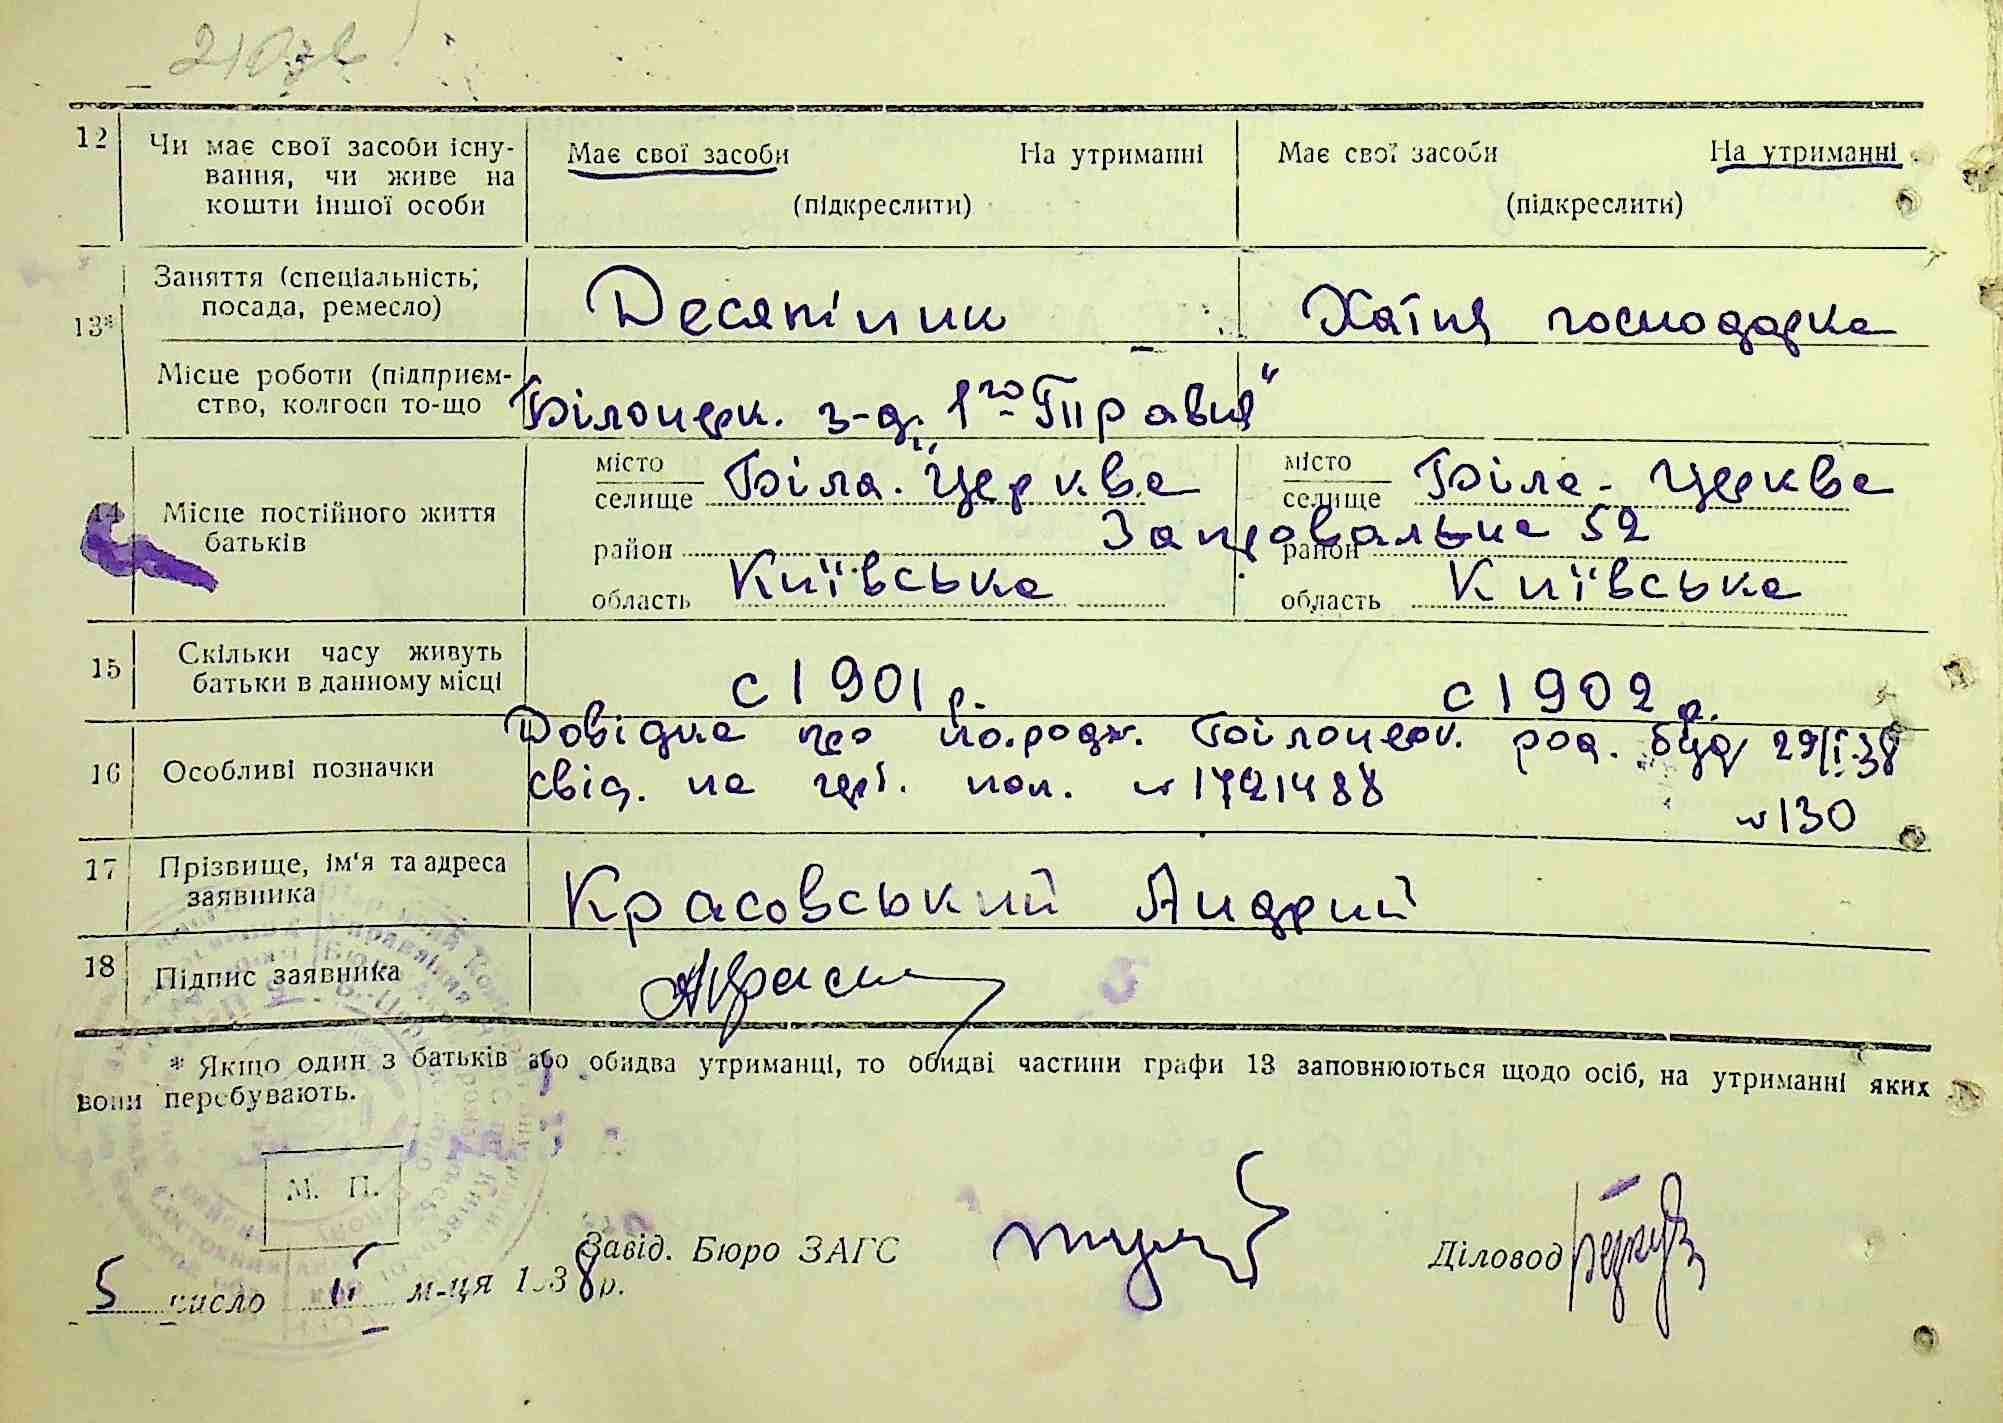 12
Чи має свої засоби існу-
вання, чи живе на
кошти іншої особи
Має свої засоби На утриманні
(підкреслити)
Має свої засоби На утриманні
(підкреслити)
13*
Заняття (спеціальність,
посада, ремесло)
Десятіник
Хатня господарка
Місце роботи (підприєм-
ство, колгосп то-що
Білоцерк. з-д. „1го Травня"
14
Місце постійного життя
батьків
місто
селище
Біла. Церква
місто
селище
Біла - Церква
район
район
52
область Київська
область Київська
15
Скільки часу живуть
батьки в данному місці
с 1901 р.
с 1902 р.
16
Особливі позначки
Довідка про по.родж. Білоцерк. род. буд 29/I.38
свід. на № 1721488
№ 130
17
Прізвище, ім'я та адреса
заявника
Красовський Андрий
18
Підпис заявника
* Якщо один з батьків або обидва утриманці, то обидві частини графи 13 заповнюються щодо осіб, на утриманні яких
вони перебувають.
М. П.
Завід. Бюро ЗАГС
Діловод
5 число II м-ця 1938 р.